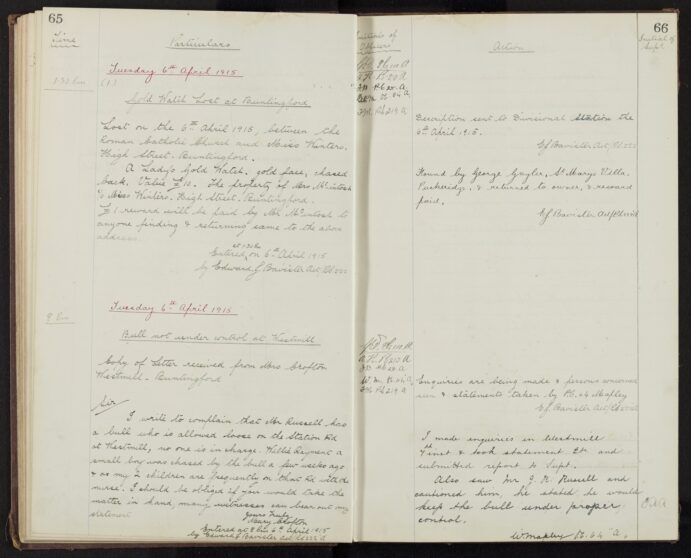 65
Time
Particulars
Tuesday 6th April 1915
(1)
Gold Watch Lost at Buntingford
Lost on the 5th April 1915, between the
Roman Catholic Church and Miss Winters,
High Street. Buntingford.
A Lady's Gold Watch, gold face, chased
back, Value £10. The property of Mrs McIntosh
Miss Winters, High Street, Buntingford.
£1 reward will be paid by Mrs McIntosh to
anyone finding & returning same to the above
address.
Entered on 6th April 1915
by Edward J Bavister Act
Tuesday 6th April 1915
Bull not under control at Westmill
Copy of Letter received from Mrs Crofton
Westmill - Buntingford
Sir
I write to complain that Mr Russell has
a bull who is allowed loose on the Station Rd
at Westmill, no one is in charge. Willie Rayment a
small boy was chased by the bull a few weeks ago
& as my 2 children are frequently on that Rd with a
nurse. I should be obliged if you would take the
matter in hand, many witnesses can bear out my
statement
Yours Truly
Mary Crofton
Entered at 9 am 6th April 1915
by Edward J Bavister Act
66
Initials of
Officer
Action
Initial of
Supt.
Description sent to Divisional Station the
6th April 1915.
EJ Bavister Act
Found by George Gayler, St Marys Villa,
Puckeridge, & returned to owner, & reward
paid.
EJ Bavister Act
Enquiries are being made & persons concerned
seen & statements taken by P.C. 64 Mapley
EJ Bavister Act
I made enquiries in Westmill
& took statement and
submitted report to Supt.
Also saw Mr J. R. Russell and
cautioned him, he stated he would
keep the bull under proper
control.
W Mapley P.C. 64 "A"